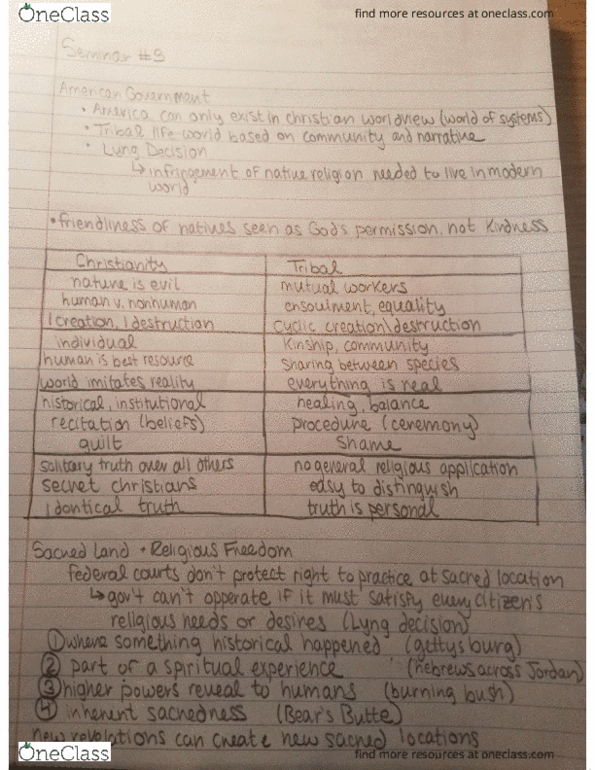 OneClass
find more resources at oneclass.com
Seminar #9
American Government
• America can only exist in christian worldview (world of systems)
• Tribal life world based on community and narrative
• Lung Decision
↳ infringement of native religion needed to live in modern
world
• friendliness of natives seen as God's permission, not kindness
Christianity Tribal
nature is evil mutual workers
human v. nonhuman ensoulment, equality
1 creation, 1 destruction cyclic creation\destruction
individual Kinship, community
human is best resource sharing between species
world imitates reality everything is real
historical, institutional healing, balance
recitation (beliefs) procedure (ceremony)
guilt Shame
solitary truth over all others no general religious application
secret christians easy to distinguish
identical truth truth is personal
Sacred Land + Religious Freedom
federal courts don't protect right to practice at sacred location
↳ gov't can't opperate if it must satisfy every citizen's
religious needs or desires (Lyng decision)
① where something historical happened (gettysburg)
② part of a spiritual experience (hebrews across Jordan)
③ higher powers reveal to humans (burning bush)
④ inherent sacredness (Bear's Butte)
new revolations can create new sacred locations
OneClass
find more resources at oneclass.com